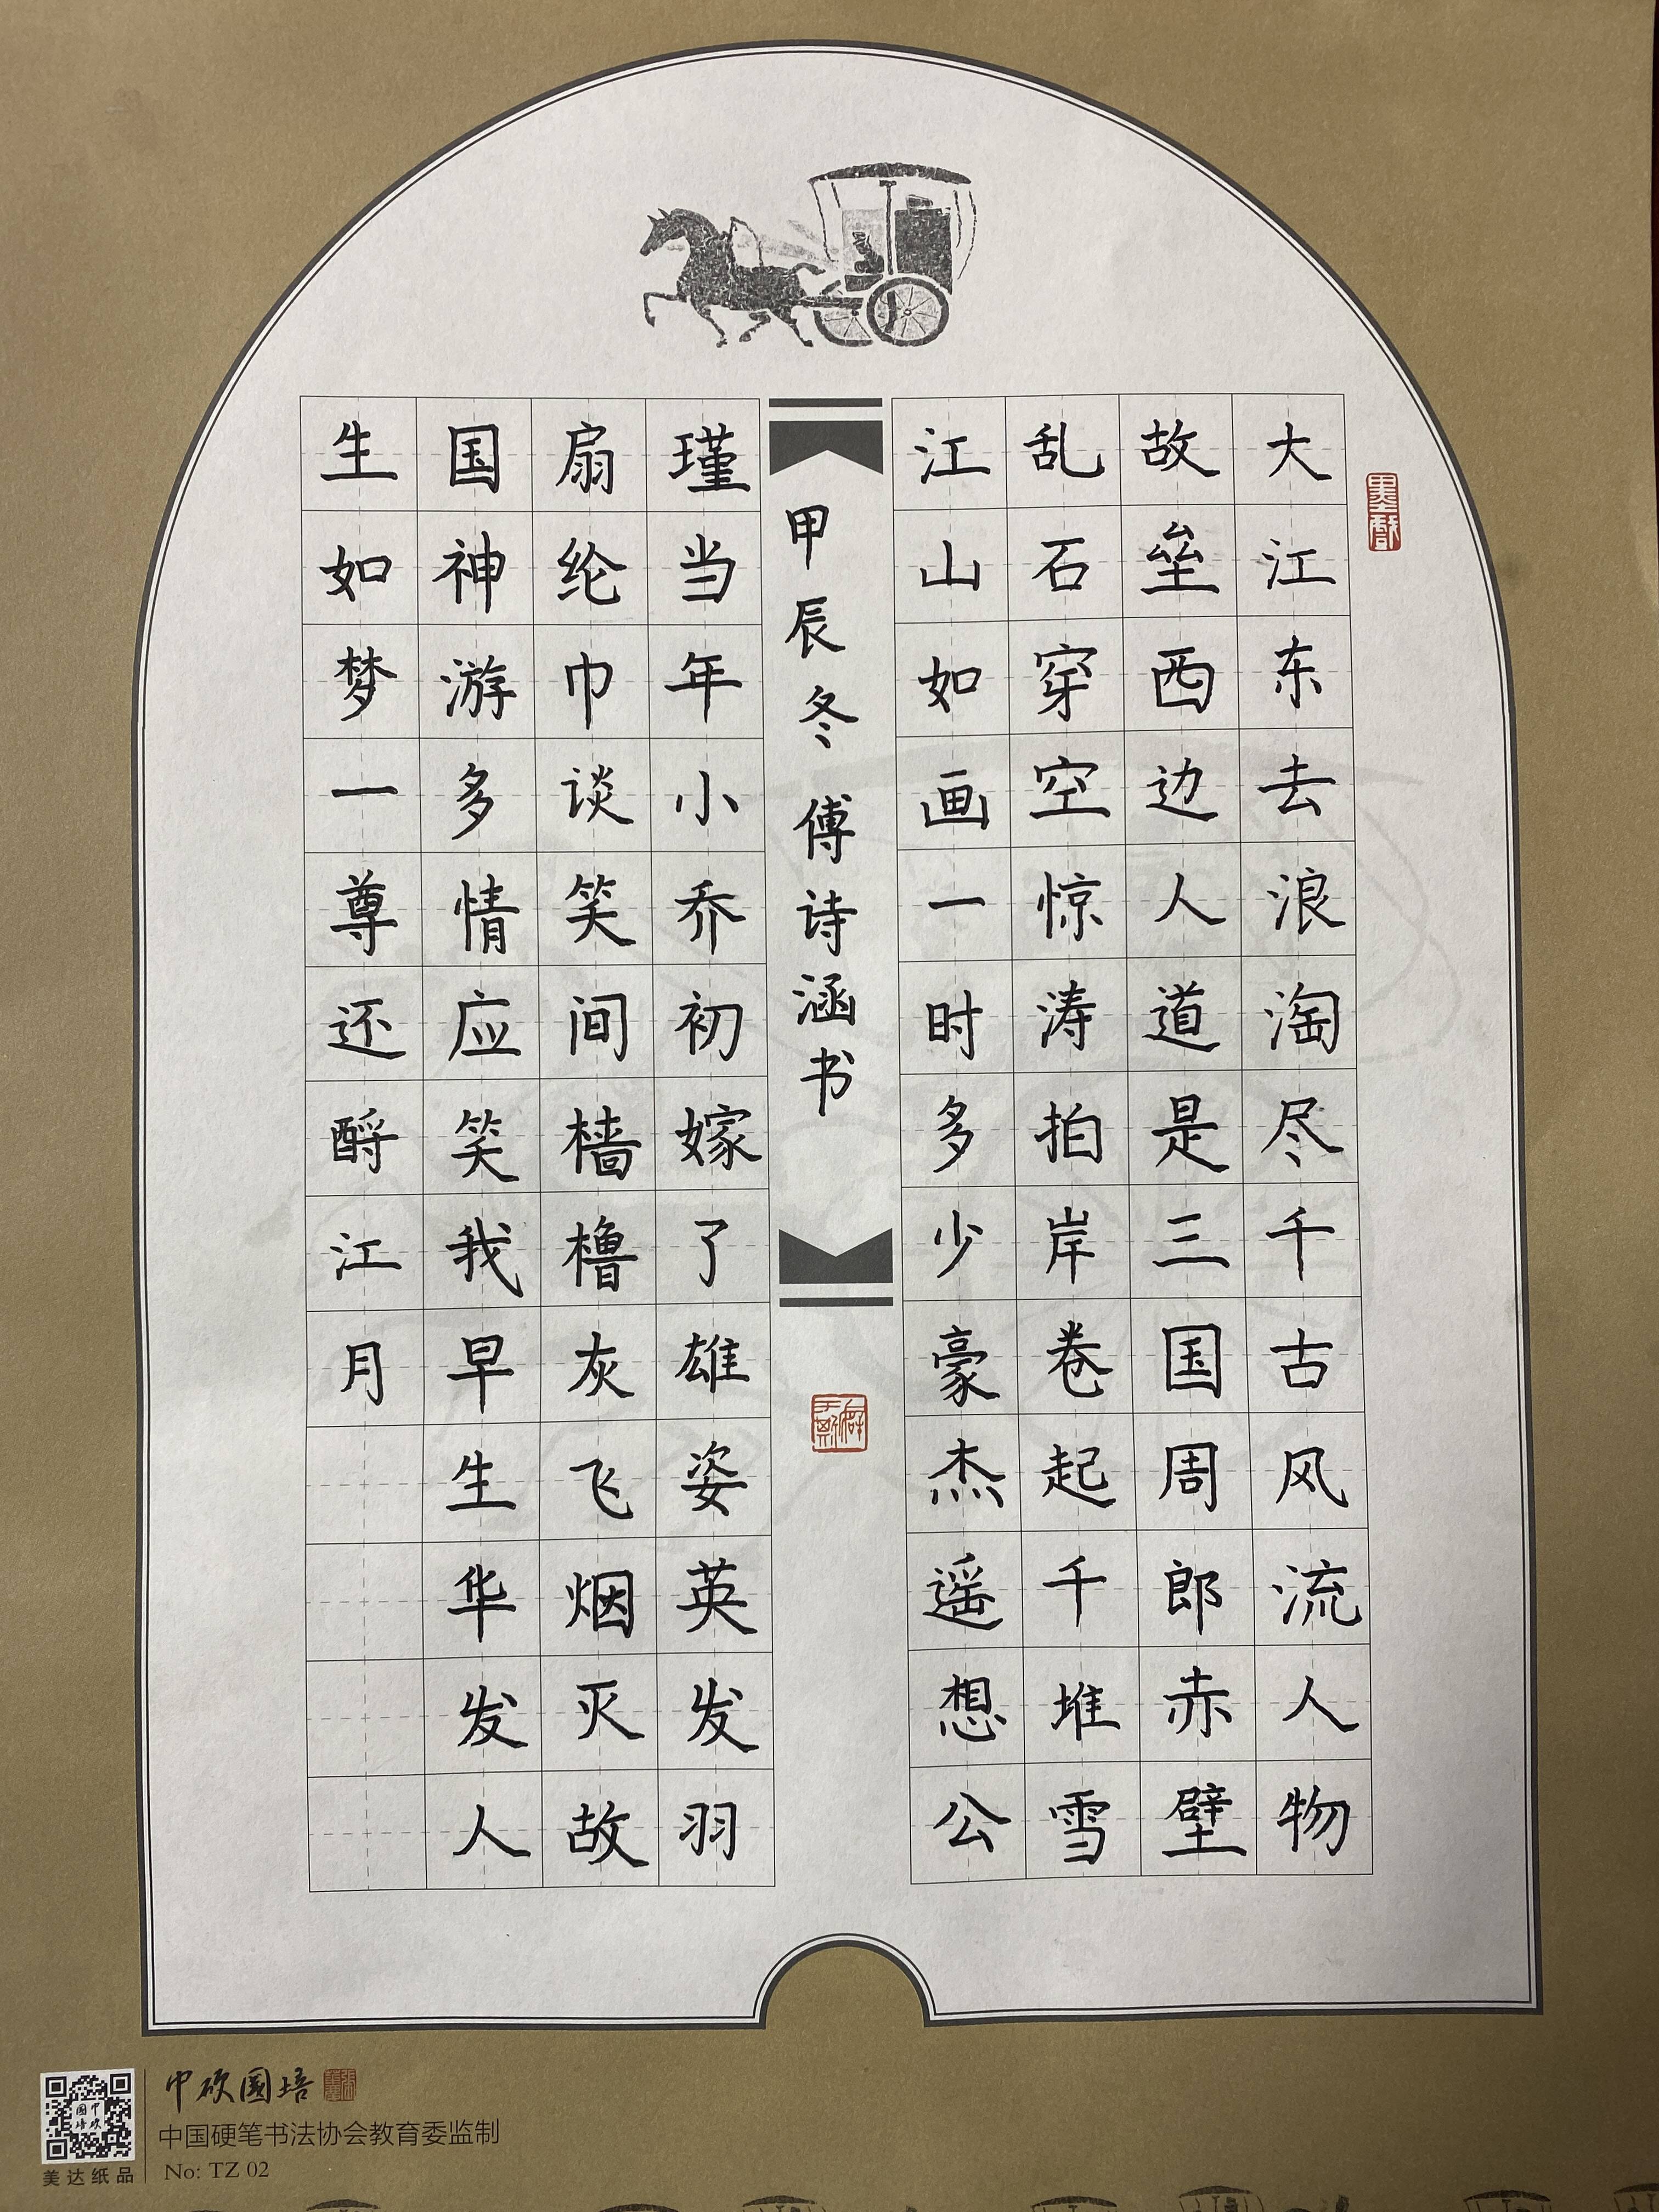 大江东去浪淘尽千古风流人物
故垒西边人道是三国周郎赤壁
乱石穿空惊涛拍岸卷起千堆雪
江山如画一时多少豪杰遥想公
甲辰冬傅诗涵书
瑾当年小乔初嫁了雄姿英发羽
扇纶巾谈笑间樯橹灰飞烟灭故
国神游多情应笑我早生华发人
生如梦一尊还酹江月
中硬国培
中国硬笔书法协会教育委监制
No: TZ 02
美达纸品